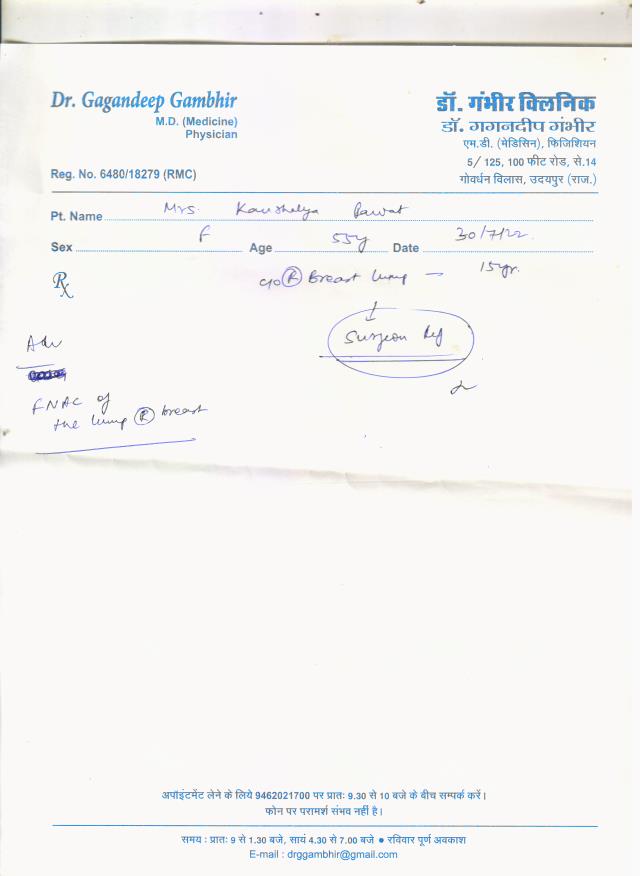 Dr. Gagandeep Gambhir
M.D. (Medicine)
Physician
Reg. No. 6480/18279 (RMC)
डॉ. गंभीर क्लिनिक
डॉ. गगनदीप गंभीर
एम.डी. (मेडिसिन), फिजिशियन
5/ 125, 100 फीट रोड, से.14
गोवर्धन विलास, उदयपुर (राज.)
Pt. Name Mrs. Kaushelya Rawat
Sex F Age 55y Date 30/7/22
Rx c/o (R) Breast lump – 15yr.
↓
Surgeon Ref
Adv
FNAC of
the lump (R) breast
अपॉइंटमेंट लेने के लिये 9462021700 पर प्रातः 9.30 से 10 बजे के बीच सम्पर्क करें।
फोन पर परामर्श संभव नहीं है।
समय : प्रातः 9 से 1.30 बजे, सायं 4.30 से 7.00 बजे ● रविवार पूर्ण अवकाश
E-mail : drggambhir@gmail.com